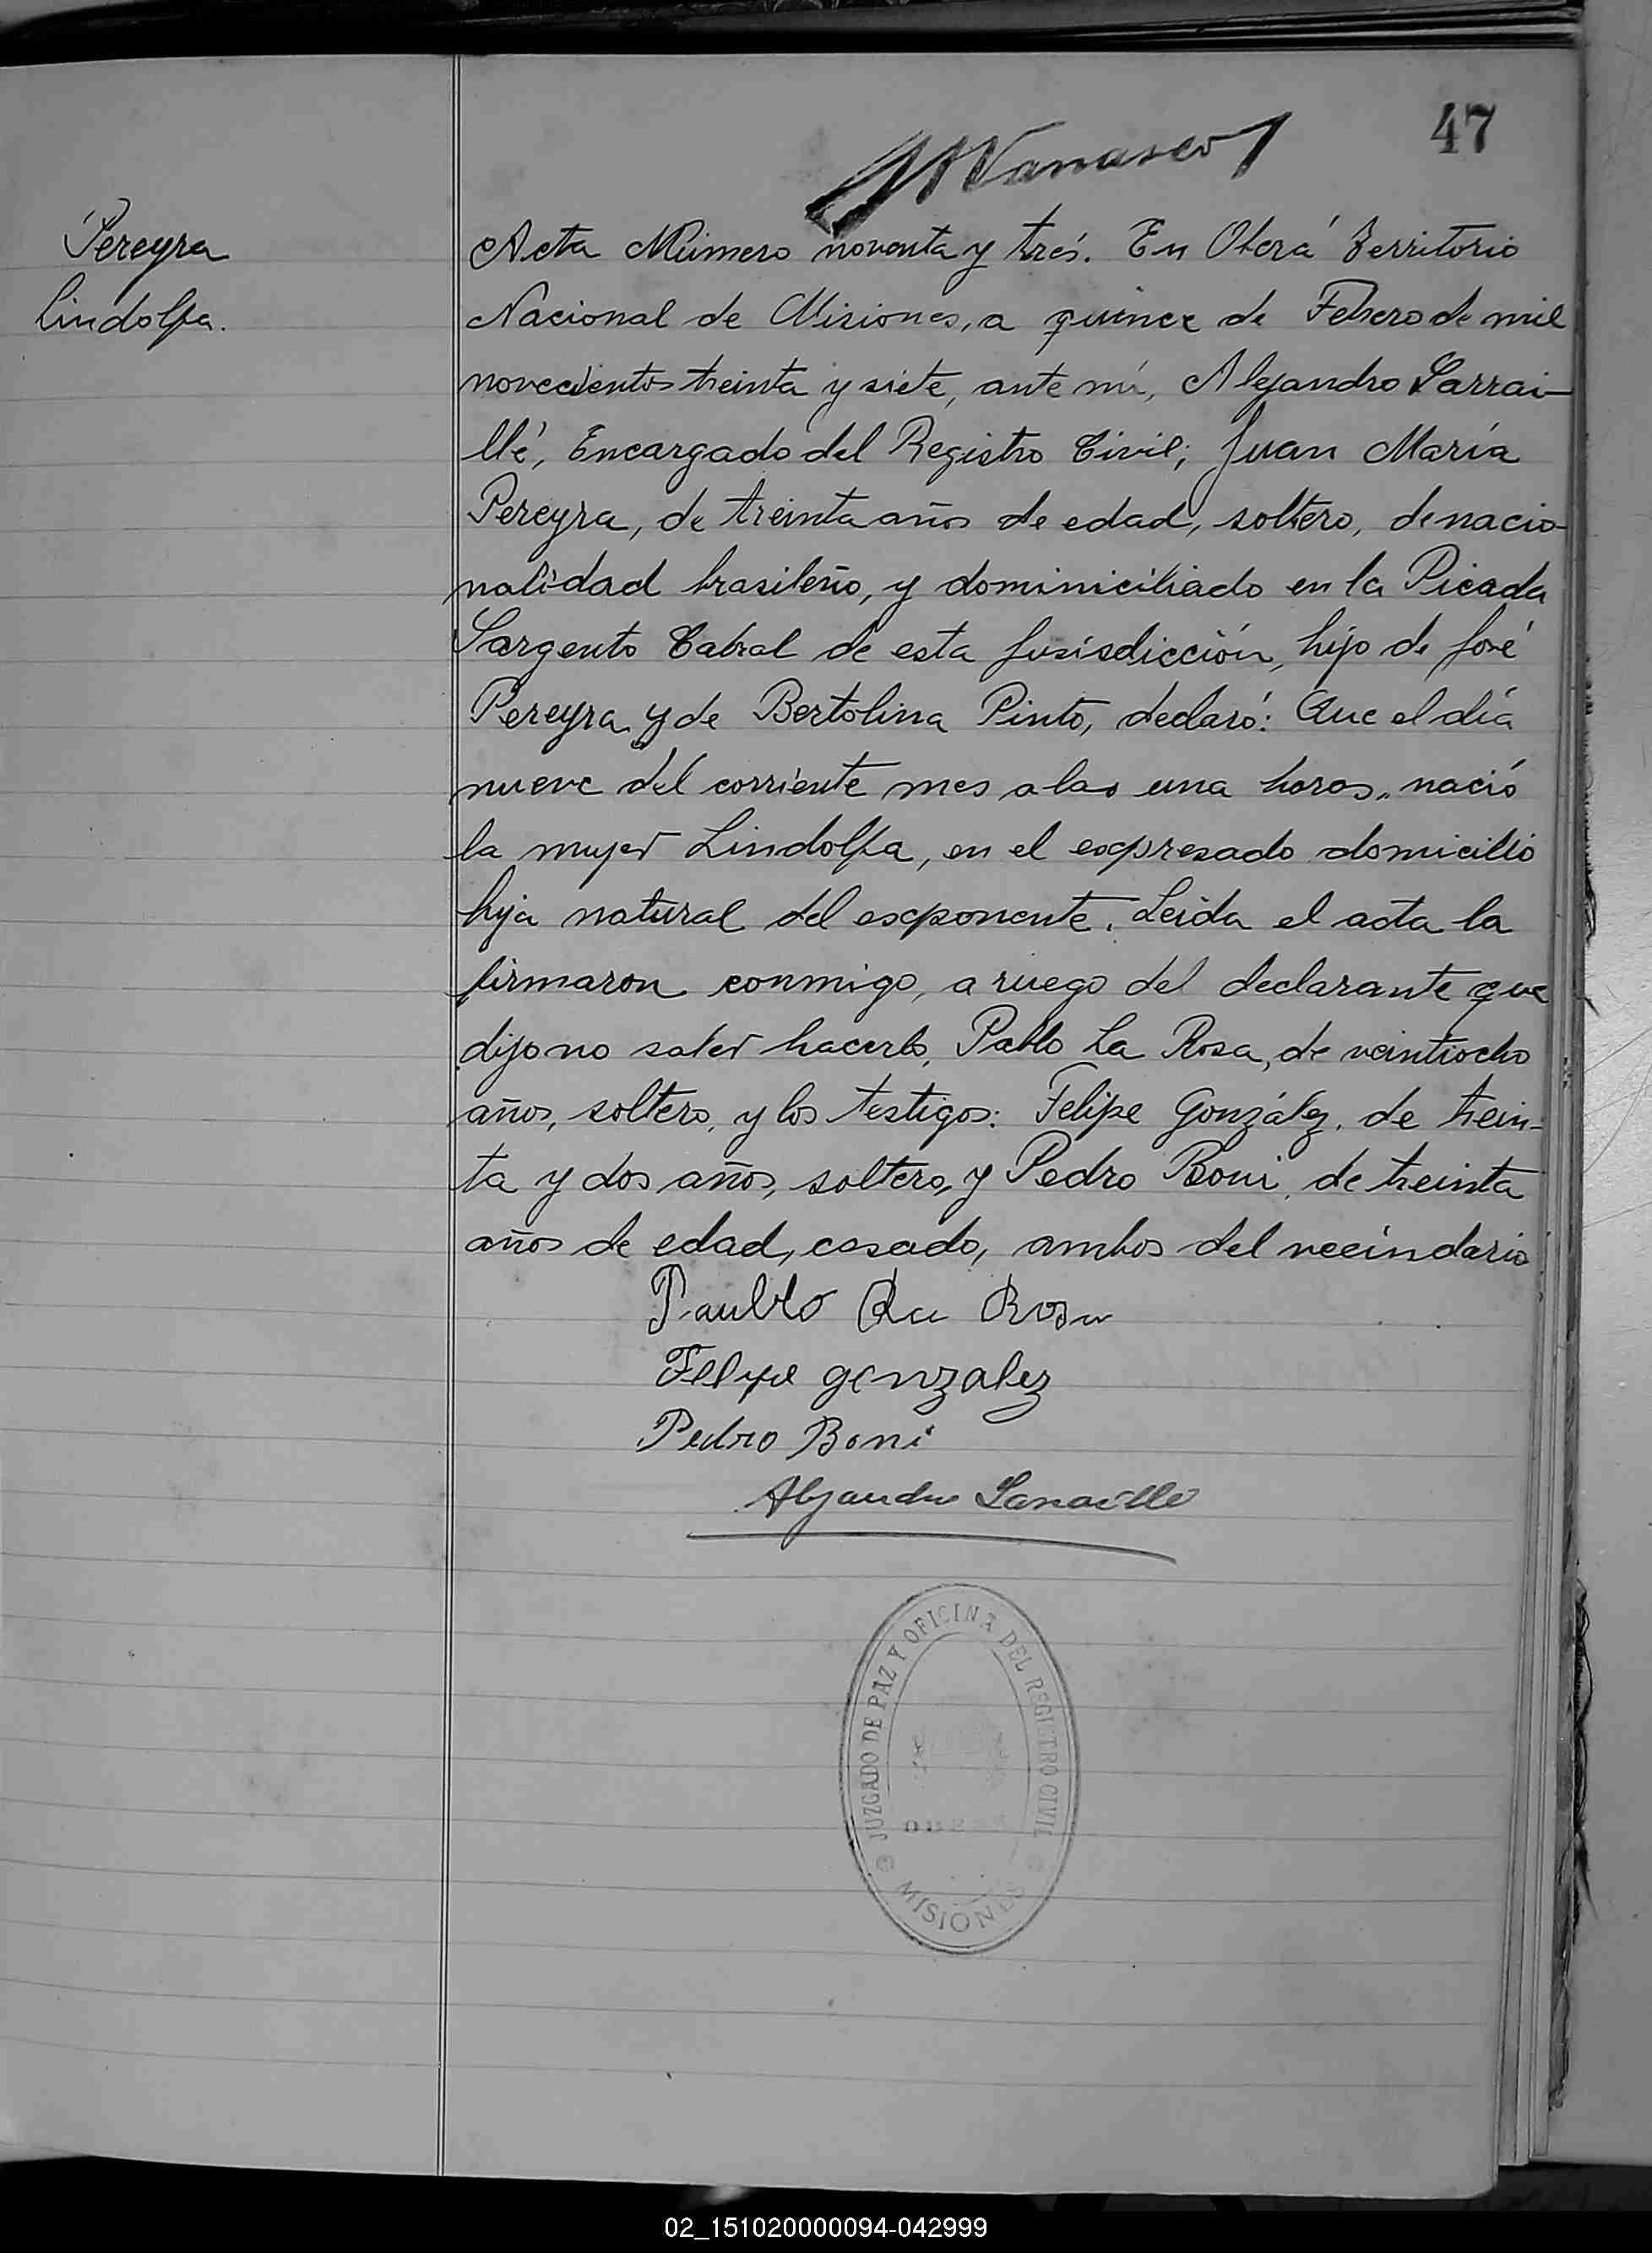 47
Pereyra
Lindolfa.
Acta Número noventa y trés. En Oberá Territorio
Nacional de Misiones, a quince de Febrero de mil
novecientos treinta y siete, ante mí, Alejandro Larrai-
llé, Encargado del Registro Civil; Juan María
Pereyra, de treinta años de edad, soltero, de nacio-
nalidad brasileño, y dominiciliado en la Picada
Sargento Cabral de esta jurisdicción, hijo de José
Pereyra y de Bertolina Pinto, declaró: Que el día
nueve del corriente mes a las una horas, nació
la mujer Lindolfa, en el expresado domicilio
hija natural del exponente. Leida el acta la
firmaron conmigo, a ruego del declarante que
dijo no saber hacerlo, Pablo La Rosa, de veintiocho
años, soltero, y los testigos: Felipe González, de trein-
ta y dos años, soltero, y Pedro Boni, de treinta
años de edad, casado, ambos del vecindario
Paublo La Rosa
Felipe gonzalez
Pedro Boni
Alejandro Larraillé
JUZGADO DE PAZ Y OFICINA DEL REGISTRO CIVIL
OBERA
MISIONES
02_151020000094-042999